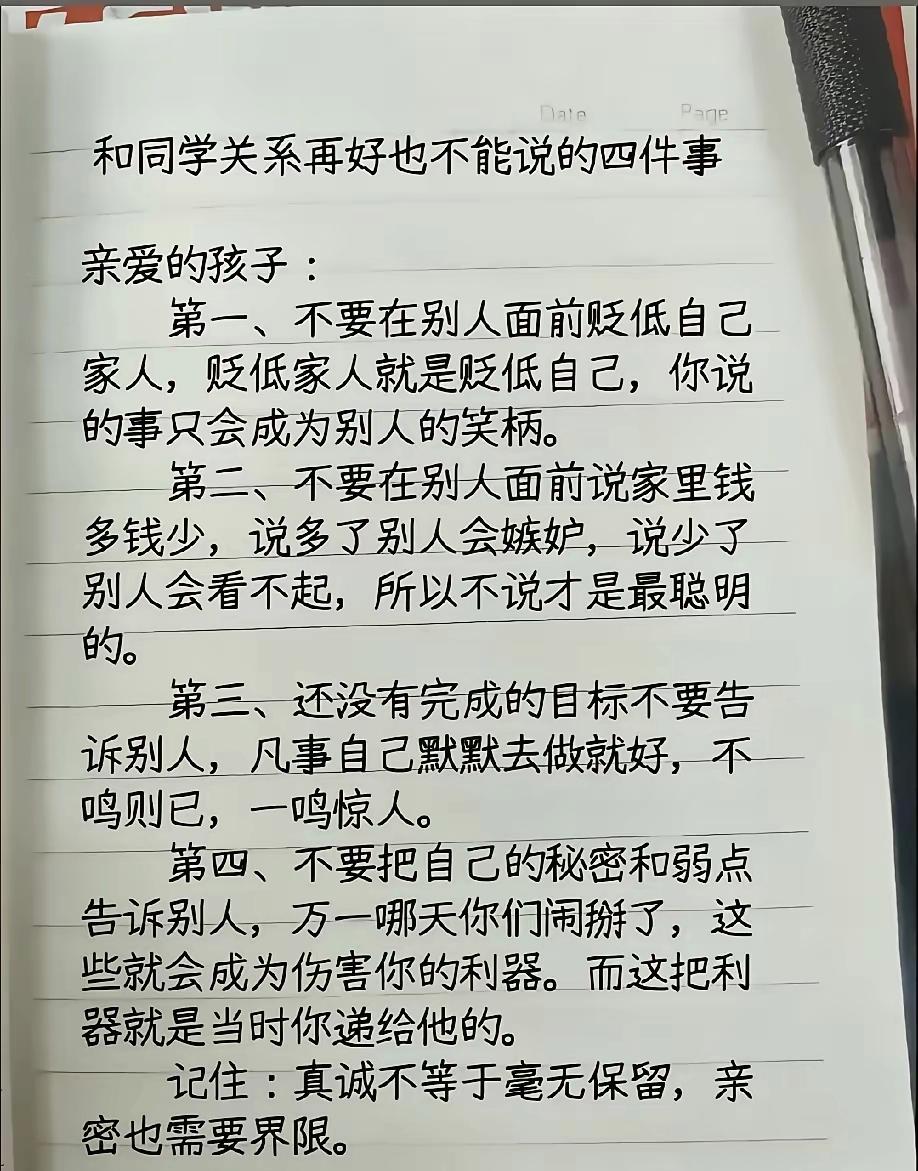 Date Page
和同学关系再好也不能说的四件事
亲爱的孩子：
第一、不要在别人面前贬低自己
家人，贬低家人就是贬低自己，你说
的事只会成为别人的笑柄。
第二、不要在别人面前说家里钱
多钱少，说多了别人会嫉妒，说少了
别人会看不起，所以不说才是最聪明
的。
第三、还没有完成的目标不要告
诉别人，凡事自己默默去做就好，不
鸣则已，一鸣惊人。
第四、不要把自己的秘密和弱点
告诉别人，万一哪天你们闹掰了，这
些就会成为伤害你的利器。而这把利
器就是当时你递给他的。
记住：真诚不等于毫无保留，亲
密也需要界限。